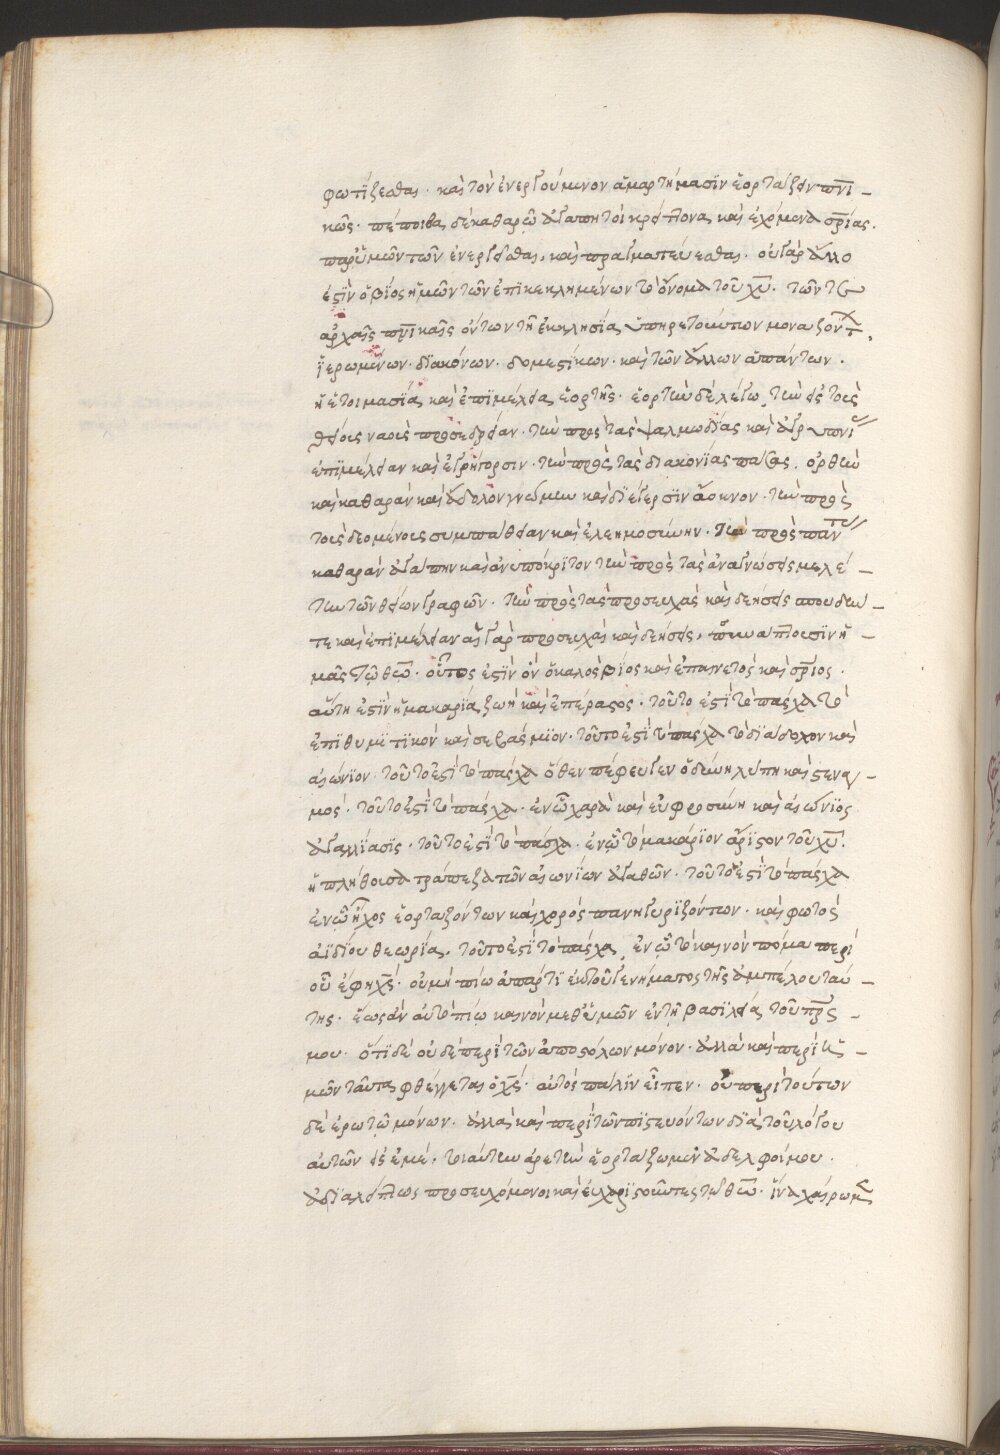 φωτίζεσθαι· καὶ τὸν ἐνεργούμενον ἁμαρτήμασϊν ἑορτάζειν πνϊ –
κῶς· πέποιθα δὲ καθαρῶ ἀγαπητοὶ κρείττονα καὶ ἐχόμενα σρίας.
παρ' ὑμῶν τῶν ἐνεργεῖσθαι, καὶ πραγματεύεσθαι· οὐ γὰρ ἄλλο
ἐστὶν ὁ βίος ἡμῶν τῶν ἐπικεκλημένων τὸ ὄνομα τοῦ χυ. τῶν
ἀρχαῖς πνϊκαῖς ὄντων τῆ ἐκκλησία, ὑπηρετούντων μοναζόντ,
ἱερωμένων· διακόνων· δομεστίκων· καὶ τῶν ἄλλων ἁπάντων·
ἡ ἑτοιμασία, καὶ ἐπϊμέλεια ἑορτῆς· ἑορτὴν δὲ λέγω, τὴν ἐν τοῖς
θείοις ναοῖς προσεδρείαν· τὴν πρὸς τὰς ψαλμωδίας καὶ ἀγρυπνί
ἐπϊμέλειαν καὶ ἐγρήγορσιν· τὴν πρὸς τὰς διακονίας πάσας, ὀρθὴν
καὶ καθαρὰν καὶ ἄδολον γνώμην καὶ διέγερσϊν ἄοκνον· τὴν πρὸς
τοὺς δεομένους συμπάθειαν καὶ ἐλεημοσύνην· τὴν πρὸς πάντ
καθαρὰν ἀγάπην καὶ ἀνυπόκρϊτον τὴν πρὸς τὰς ἀναγνώσεις μελέ –
την τῶν θείων γραφῶν· τὴν πρὸς τὰς προσευχὰς καὶ δεήσεις σπουδήν –
τε καὶ ἐπϊμέλειαν αἱ γὰρ προσευχαὶ καὶ δεήσεις, ποιοῦσϊν ἡ –
μᾶς τῶ θεῶ· οὗτος ἐστὶν οὖν ὁ καλὸς βίος καὶ ἐπαινετὸς καὶ σριος·
αὕτη ἐστὶν ἡ μακαρία ζωὴ καὶ ἐπέραστος· τοῦτο ἐστὶ τὸ πάσχα τὸ
ἐπϊθυμϊτϊκὸν καὶ σεβάσμϊον· τοῦτο ἐστὶ τὸ πάσχα τὸ διάδοχον καὶ
αἰώνϊον· τοῦτο ἐστὶ τὸ πάσχα ὅθεν πέφευγεν ὀδύνη λύπη καὶ στεναγ –
μός· τοῦτο ἐστὶ τὸ πάσχα· ἐν ὧ χαρὰ καὶ εὐφροσύνη καὶ αἰώνϊος
ἀγαλλίασϊς· τοῦτο ἐστὶ τὸ πάσχα· ἐν ὧ τὸ μακάρϊον ἄριστον τοῦ χυ.
ἡ πλήθουσα τράπεζα τῶν αἰωνίων ἀγαθῶν· τοῦτο ἐστὶ τὸ πάσχα
ἐν ὧ ἦχος ἑορταζόντων καὶ χορὸς πανηγυρϊζόντων· καὶ φωτὸς
ἀϊδίου θεωρία· τοῦτο ἐστὶ τὸ πάσχα, ἐν ὧ τὸ καινὸν πόμα περὶ
οὗ ἔφη χς· οὐ μὴ πίω ἀπάρτϊ ἐκ τοῦ γενήματος τῆς ἀμπέλου ταύ –
της· ἕως ἂν αὐτὸ πίω καινὸν μεθ' ὑμῶν ἐν τῆ βασϊλεία τοῦ πρς –
μου· ὅτϊ δὲ οὐδὲ περὶ τῶν ἀποστόλων μόνον· ἀλλὰ καὶ περὶ ἡ –
μῶν ταῦτα φθέγγεται ὁ χς· αὐτὸς πάλϊν εἶπεν· οὐ περὶ τούτων
δὲ ἐρωτῶ μόνων· ἀλλὰ καὶ περὶ τῶν πϊστευόντων διὰ τοῦ λόγου
αὐτῶν εἰς ἐμέ· τοιαύτην ἀρετὴν ἑορτάζωμεν ἀδελφοί μου·
ἀδϊαλείπτως προσευχόμενοι καὶ εὐχαρϊστοῦντες τῶ θεῶ· ἵνα χαίρωμ